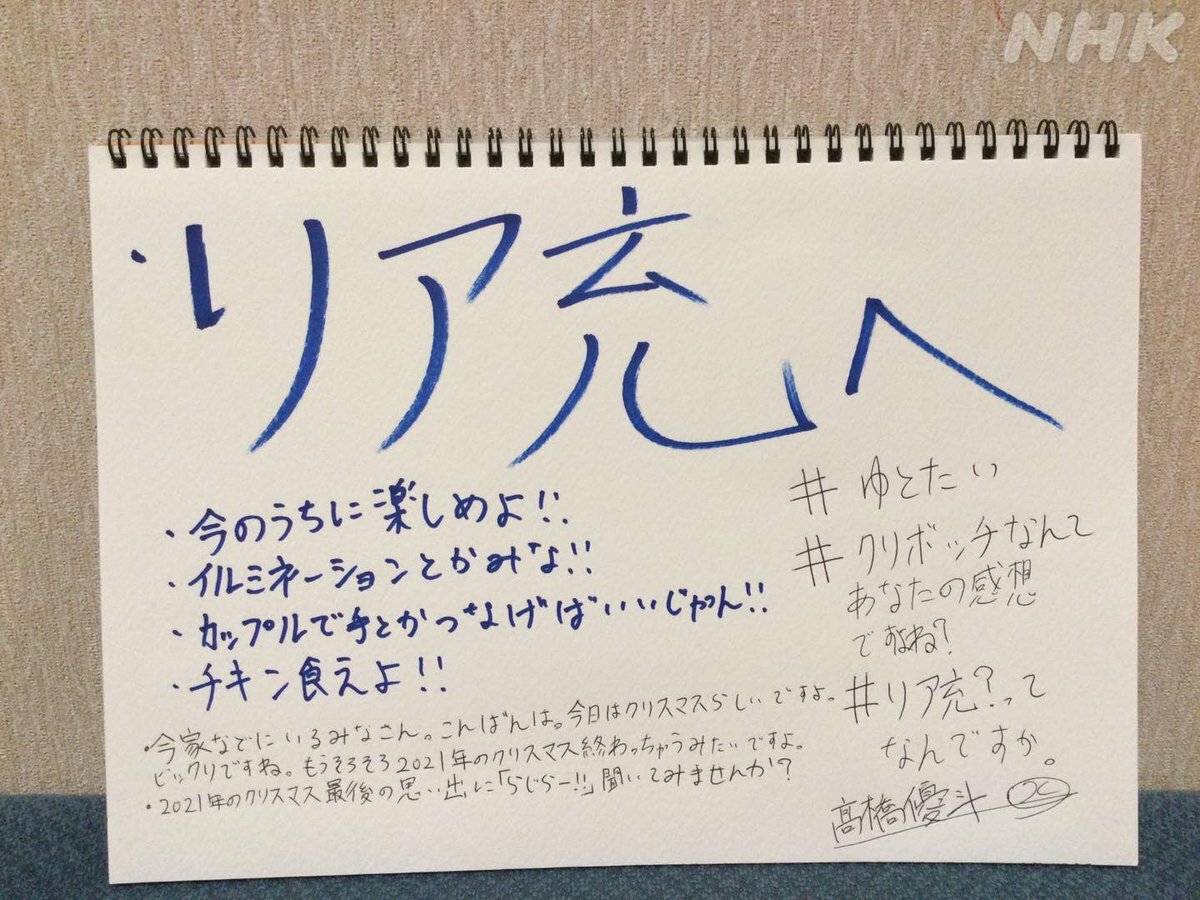 NHK
・リア充へ
・今のうちに楽しめよ!!
・イルミネーションとかみな!!
・カップルで手とかつなげばいいじゃん!!
・チキン食えよ!!
・今家などにいるみなさん。こんばんは。今日はクリスマスらしいですよっ
ビックリですね。もうそろそろ2021年のクリスマス終わっちゃうみたいですよ。
・2021年のクリスマス最後の思い出に「らじらー!!」聞いてみませんか?
# ゆとたい
# クリボッチなんて
あなたの感想
ですよね?
#リア充?って
なんですか。
髙橋優斗